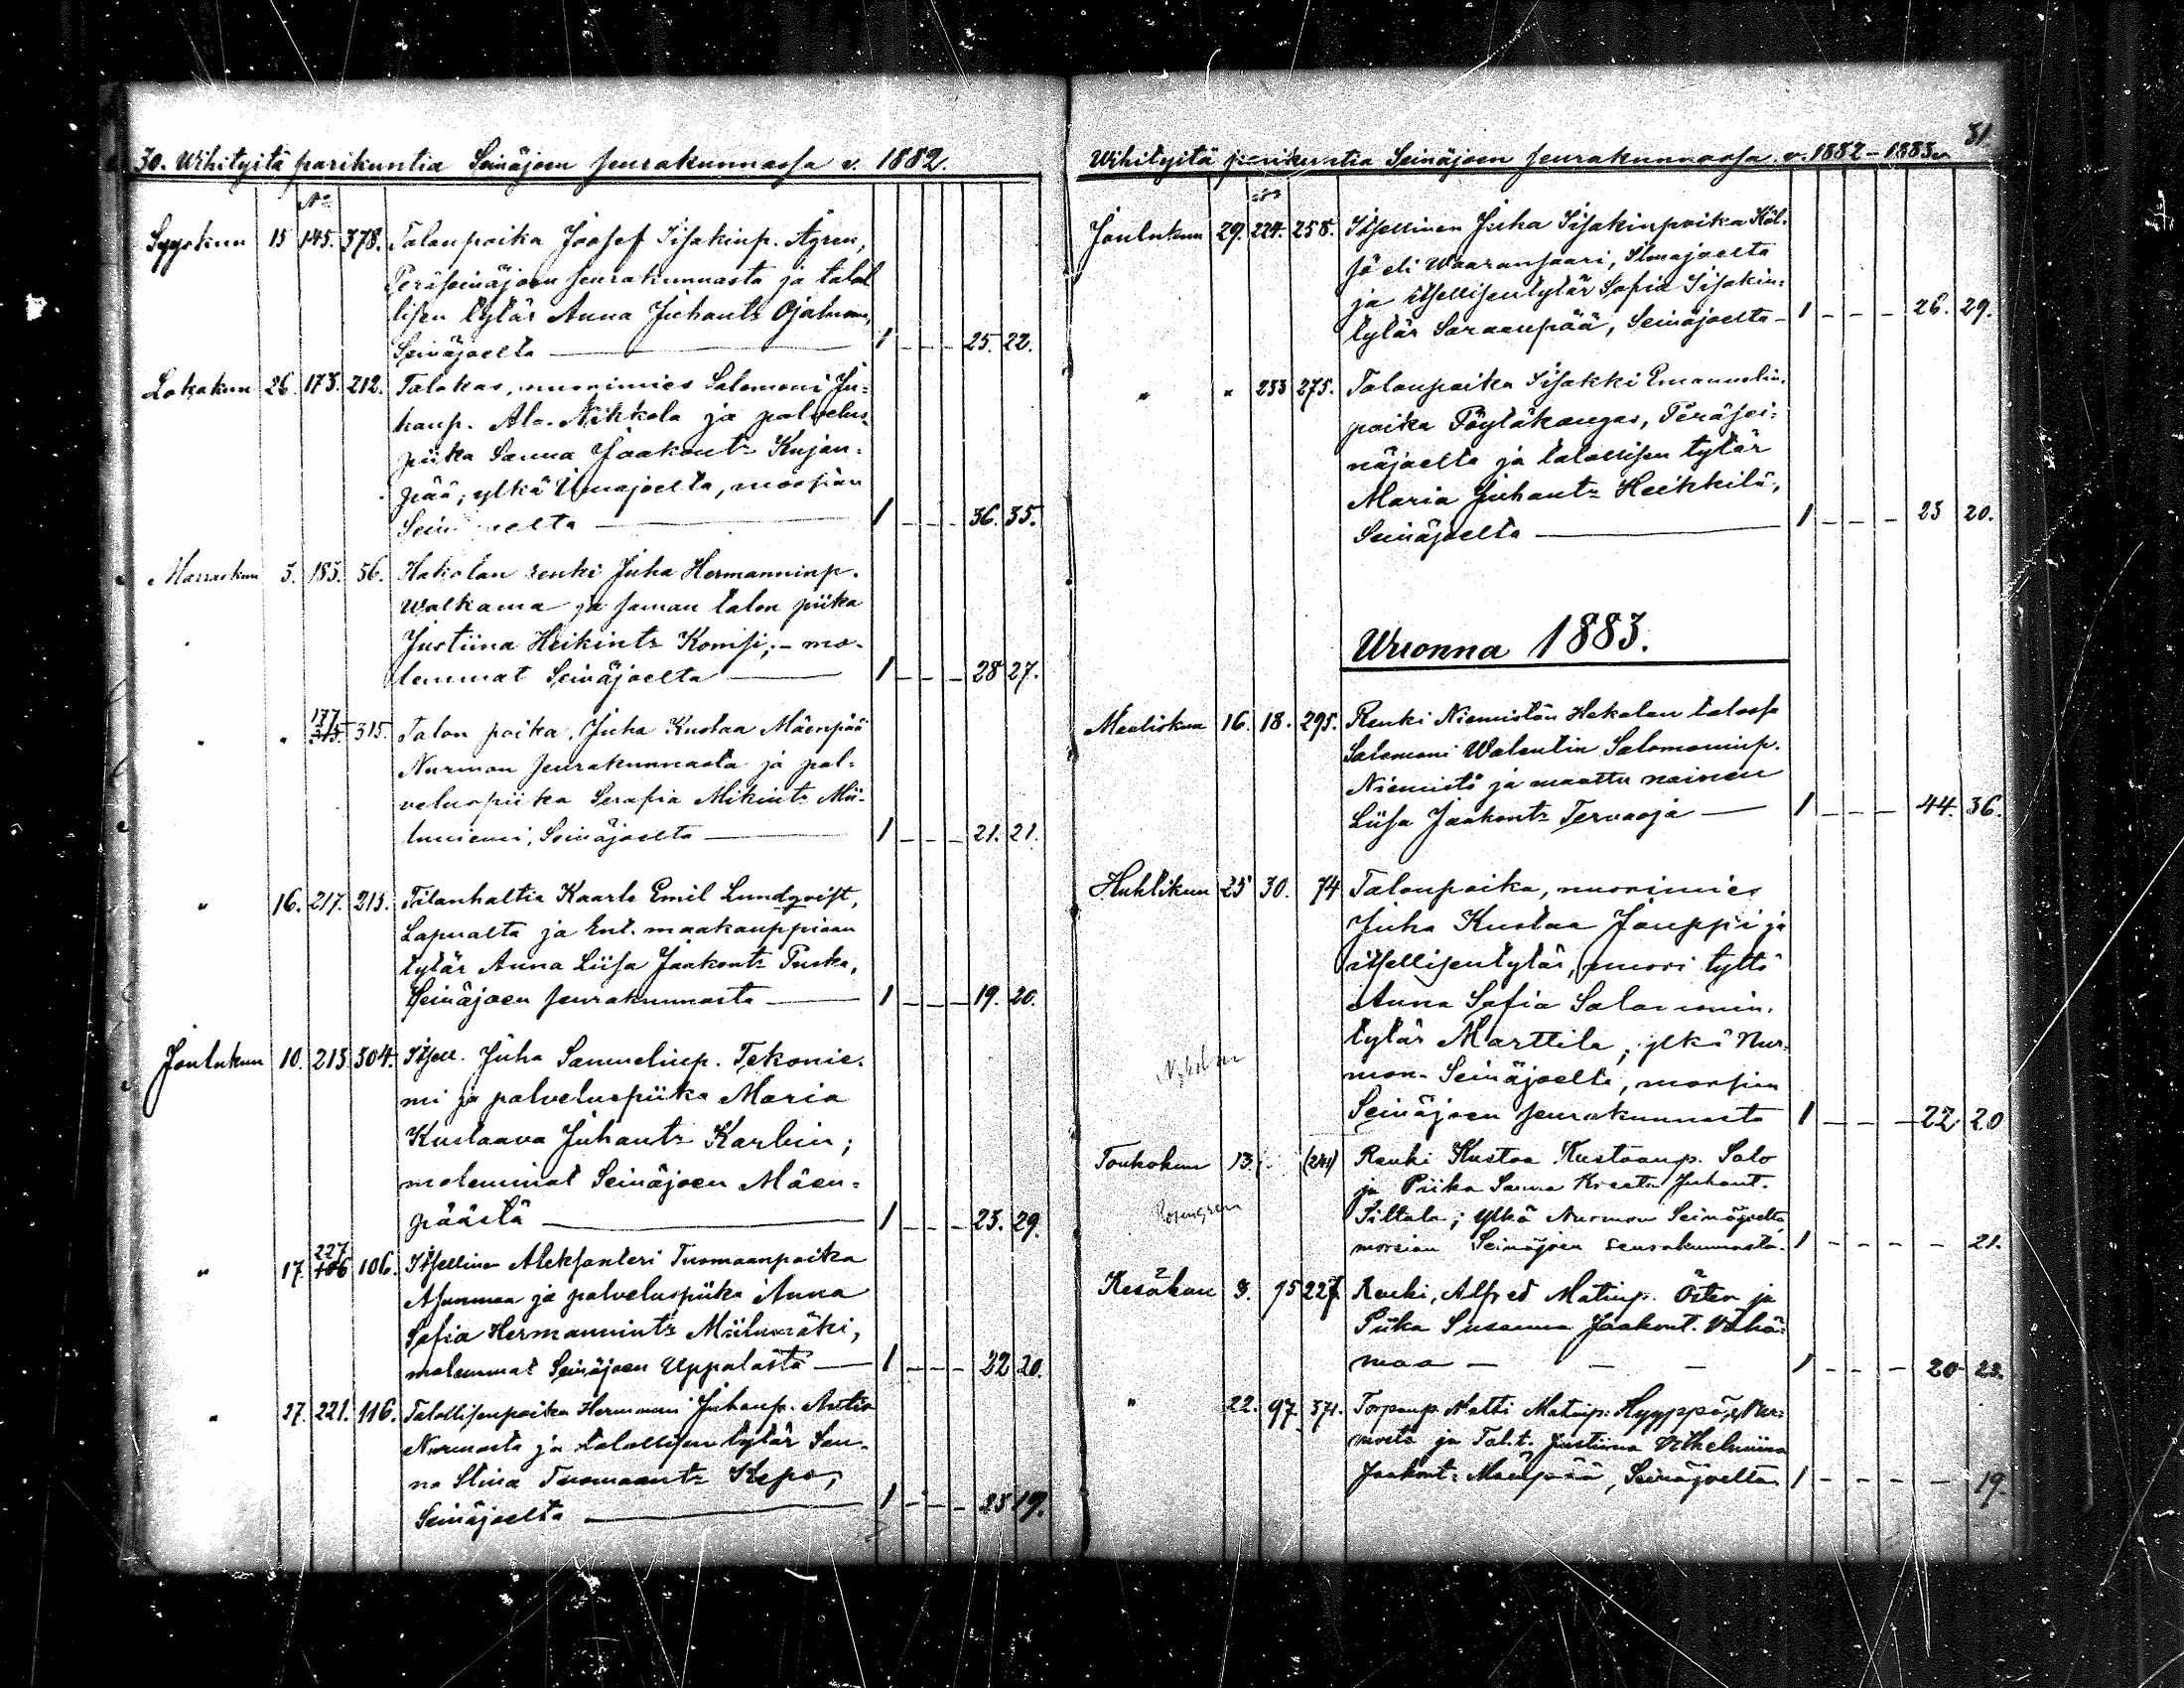 30. Wihityitä parikuntia Seinäjoen seurakunnassa v. 1882.
No
Syyskuu 15 145. 378. Talonpoika Joosef Iisakinp. Ågren,
Peräseinäjoen seurakunnasta ja talol
lisen tytär Anna Juhantr
Seinäjoelta — 1 - - - 25. 22.
Lokakuu 26. 173. 212. Talokas, nuorimies Salomoni Ju-
hanp. Ala-Nikkola ja palvelus-
piika Sanna Jaakontr Kujan-
pää; ylkä Ilmajoelta, morsian
1 - - - 36. 35.
Marraskuu 3. 183. 56. Hakolan renki Juha Hermanninp.
Walkama ja saman talon piika
Justiina Heikintr Komsi; - mo-
lemmat Seinäjoelta — 1 - - - 28 27.
" " 177 315. Talon poika, Juha Kustaa Mäenpää
Nurmon seurakunnasta ja pal-
veluspiika Serafia Mikintr Mii-
luniemi, Seinäjoelta — 1 - - - 21. 21.
" 16. 217. 215. Tilanhaltia Kaarlo Emil Lundqvist,
Lapualta ja Ent. maakauppiaan
tytär Anna Liisa Jaakontr Puska,
Seinäjoen seurakunnasta — 1 - - - 19. 20.
Joulukuu 10. 213. 304. Itsell. Juha Samuelinp. Tekonie-
mi ja palveluspiika Maria
Kustaava Juhantr Karhin;
molemmat Seinäjoen Mäen-
päästä — 1 - - - 25. 29.
" 17. 227 106. Itsellinen Aleksanteri Tuomaanpoika
Asunmaa ja palveluspiika Anna
Sofia Hermannintr Miilumäki,
molemmat Seinäjoen Uppalasta — 1 - - - 22 20.
" 27. 221. 116. Talollisenpoika Hermanni Juhanp. Antia
Nurmosta ja talollisen tytär San-
na Stina Tuomaantr Itepo,
Seinäjoelta — 1 - - - 25 19.
31.
Wihityitä parikuntia Seinäjoen seurakunnassa v. 1882-1883
No
Joulukuu 29. 224. 258. Itsellinen Juha Iisakinpoika Höl-
sö eli Waaransaari, Ilmajoelta
ja itsellisentytär Sofia Iisakin-
tytär Saraanpää, Seinäjoelta - 1 - - - 26. 29.
" " 233 275. Talonpoika Iisakki Emanuelin-
poika Pöytäkangas, Peräsei-
näjoelta ja talollisen tytär
Maria Juhantr Heikkilä,
Seinäjoelta — 1 - - - 23 20.
Wuonna 1883.
Maaliskuu 16. 18. 295. Renki Niemistön Hakolan talossa
Salomoni Walentin Salomoninp.
Niemistö ja maattu nainen
Liisa Jaakontr Tervaoja — 1 - - - 44. 36.
Huhtikuu 25 30. 74 Talonpoika, nuorimies
Juha Kustaa Jouppi ja
itsellisentytär, nuori tyttö
Anna Sofia Salomonin-
tytär Marttila; ylkä Nur-
mon- Seinäjoelta, morsian
Seinäjoen seurakunnasta 1 - - - 22 20
Toukokuu 13. (241) Renki Kustaa Kustaanp. Salo
ja Piika Sanna Kreeta Juhant.
Siltala; ylkä Nurmon Seinäjoelta
morsian Seinäjoen seurakunnasta. 1 - - - - 21.
Rosengren
Kesäkuu 3. 75 227 Renki, Alfred Matinp. Öster ja
Piika Susanna Jaakont. Vähä-
maa — — — 1 - - - 20 22.
" 22. 97. 371. Torpanp. Matti Matinp. Hyyppä, Nur-
mosta ja Tal.t. Justiina Vilhelmiina
Jaakont. Mäenpää, Seinäjoelta 1 - - - - 19.